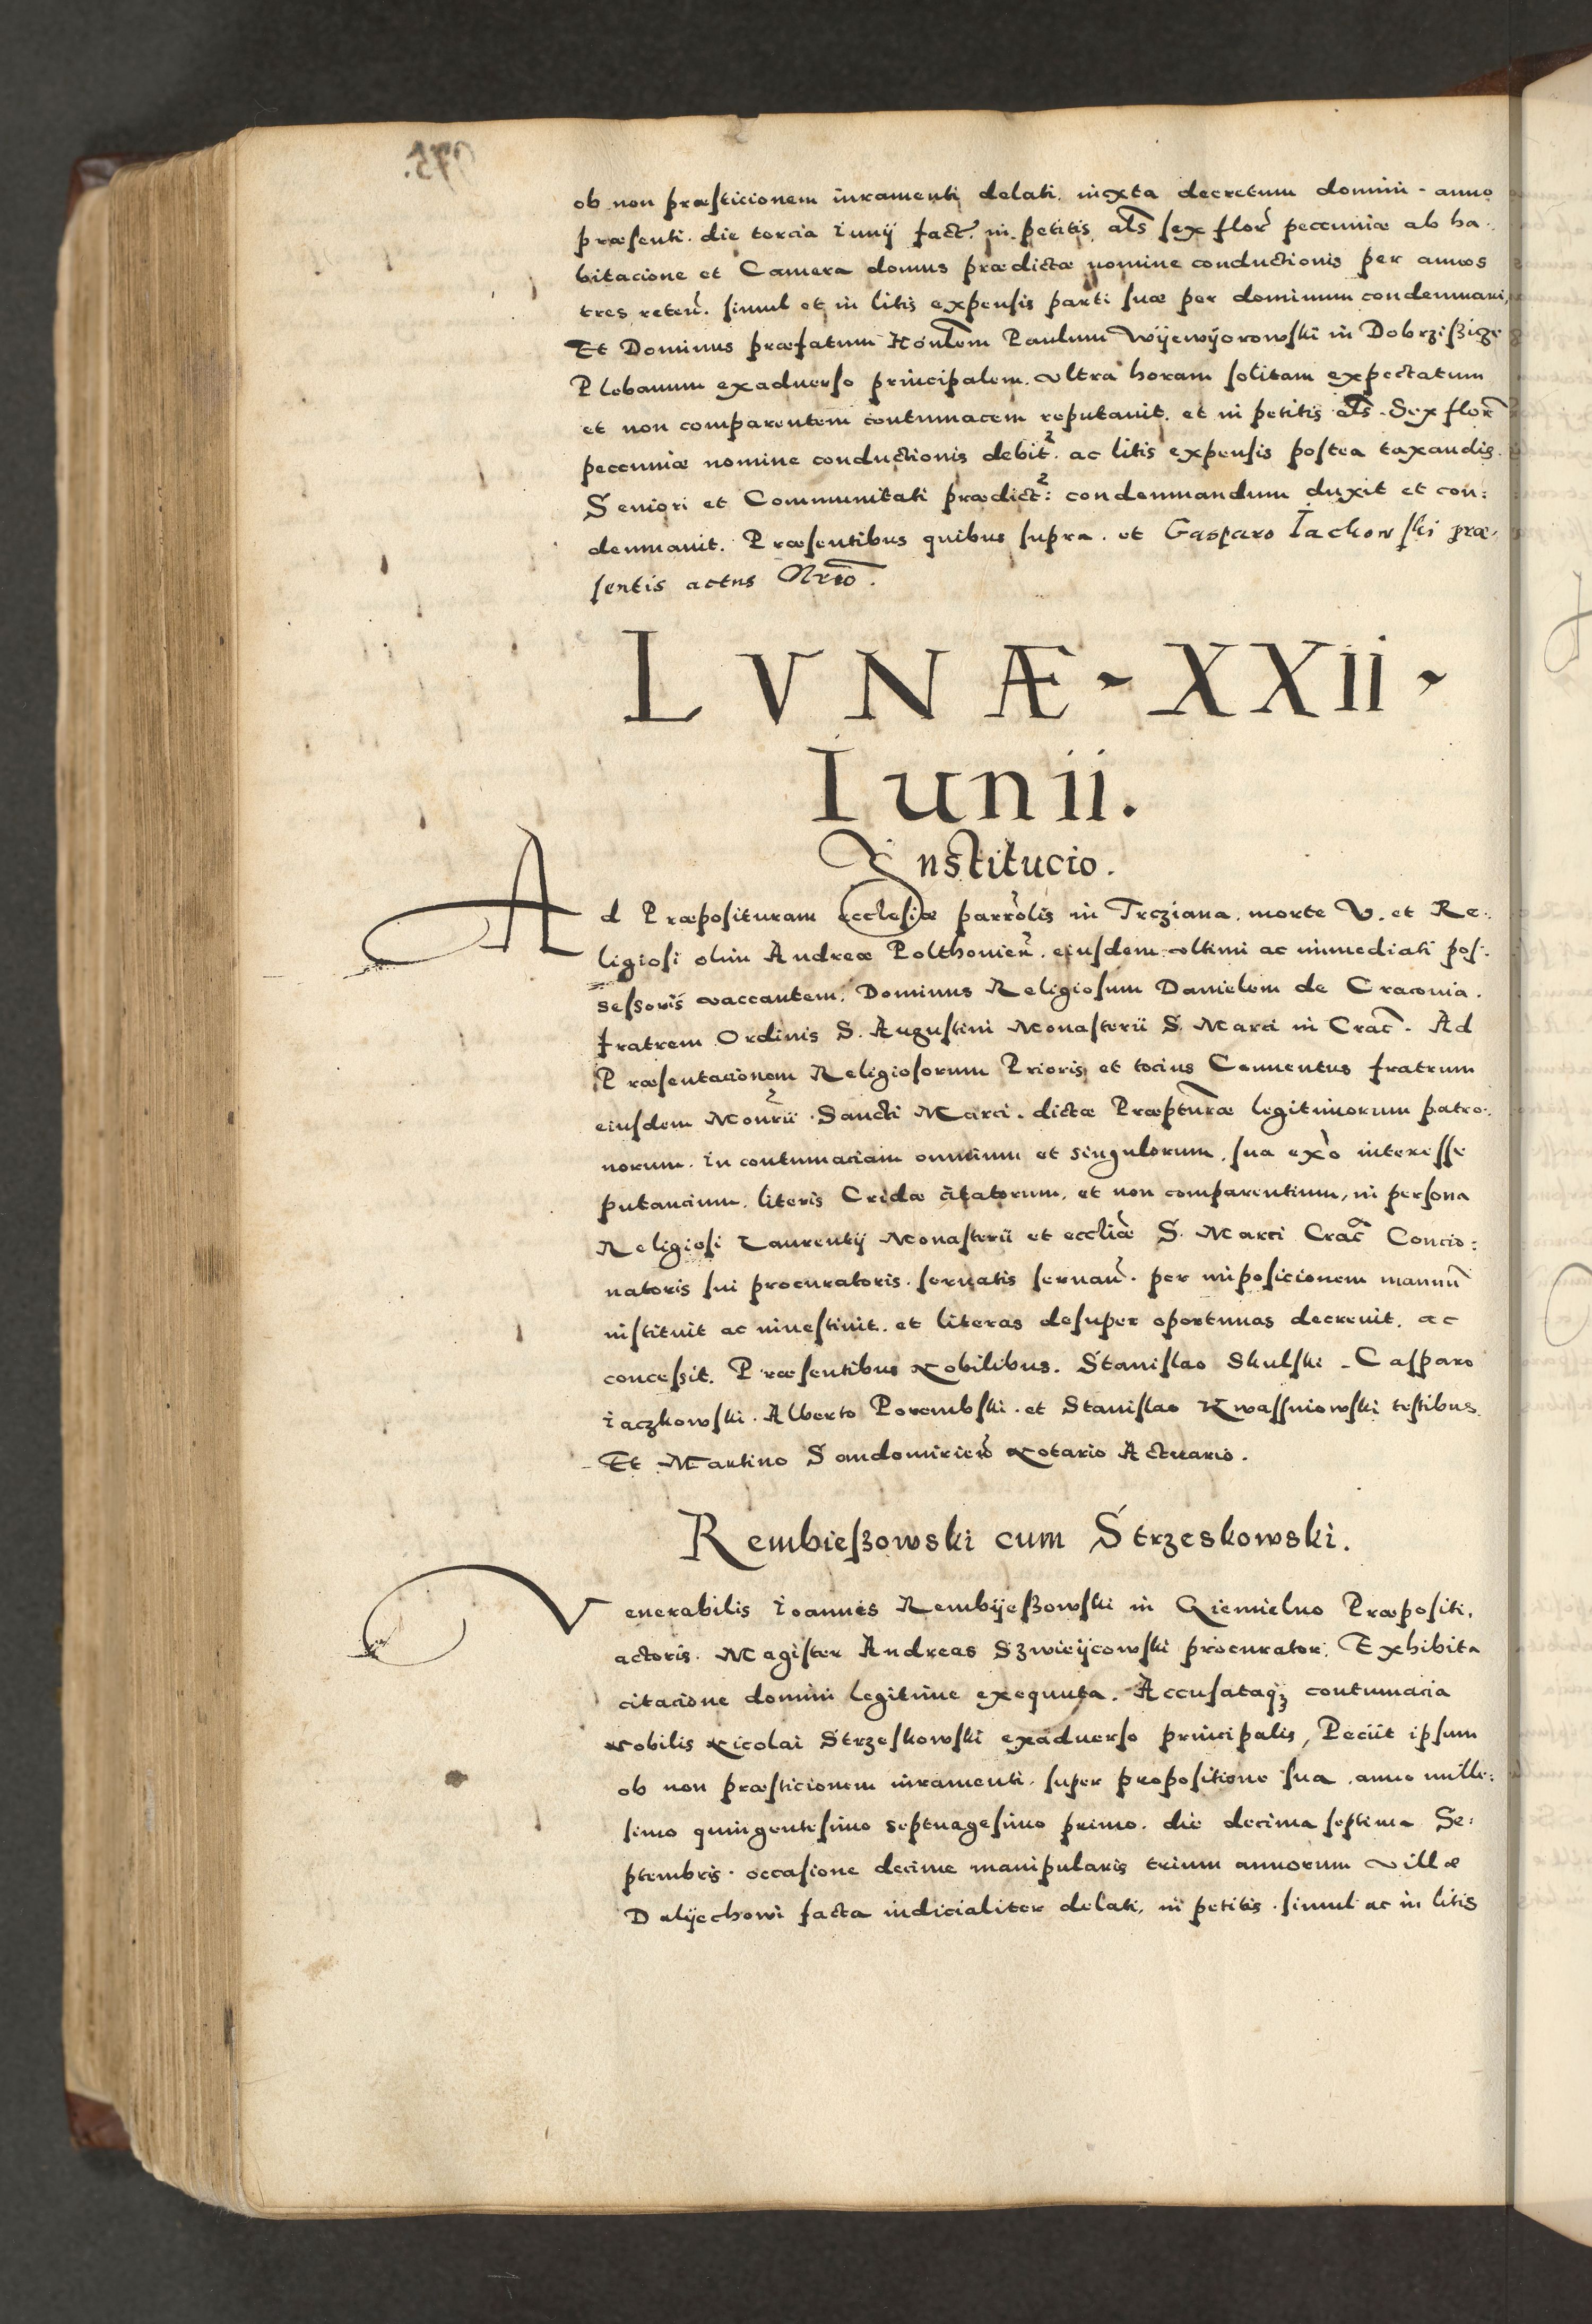 ob non præsticionem iuramenti delati. iuxta decretum domini. anno
præsenti. die tercia Iunij fact. in petitis. als sex flor peccuniæ ab ha-
bitacione et Camera domus prædictæ nomine conductionis per annos
tres reten. simul et in litis expensis parti suæ per dominum condemnari,
Et Dominus præfatum Honlem Paulum Wijewijorowski in Dobrzißicze
Plebanum exaduerso principalem. vltra horam solitam expectatum
et non comparentem contumacem reputauit. et in petitis als. Sex flor
peccuniæ nomine conductionis debit. ac litis expensis postea taxandis.
Seniori et Communitati prædict: condemnandum duxit et con:
demnauit. Præsentibus quibus supra. et Gasparo Iackowski præ-
sentis actus Nrio.
LVNÆ - XXII -
Iunii.
Institucio.
Ad Præposituram ecclesiæ parrolis in Trcziana. morte V. et Re-
ligiosi olim Andreæ Polthouien. eiusdem vltimi ac immediati pos-
sessoris vaccantem. Dominus Religiosum Danielem de Cracouia.
fratrem Ordinis S. Augustini Monasterii S. Marci in Crac. Ad
Præsentacionem Religiosorum Prioris et tocius Conuentus fratrum
eiusdem Monrii Sancti Marci. dictæ Præpturæ legitimorum patro-
norum. In contumaciam omnium et singulorum, sua exo interesse
putancium. literis Cridæ citatorum, et non comparentium, in persona
Religiosi Laurentij Monasterii et eccliæ S. Marci Crac Concio:
natoris sui procuratoris. seruatis seruan. per imposicionem manuu
instituit ac inuestiuit. et literas desuper oportunas decreuit. ac
concessit. Præsentibus Nobilibus. Stanislao Skulski. Casparo
Iaczkowski. Alberto Porembski. et Stanislao Kwassniowski testibus.
Et Martino Sandomirien Notario Actuario.
Rembießowski cum Strzeskowski.
Venerabilis Ioannes Rembijeßowski in Qiemielno Præpositi,
actoris. Magister Andreas Szwieijcowski procurator. Exhibita
citacione domini legitime exequuta. Accusataqȝ contumacia
Nobilis Nicolai Strzeskowski exaduerso principalis, Peciit ipsum
ob non præsticionem iuramenti. super propositione sua. anno mille:
simo quingentesimo septuagesimo primo. die decima septima Se:
ptembris. occasione decime manipularis trium annorum villæ
Dalijechowi facta iudicialiter delati, in petitis. simul ac in litis